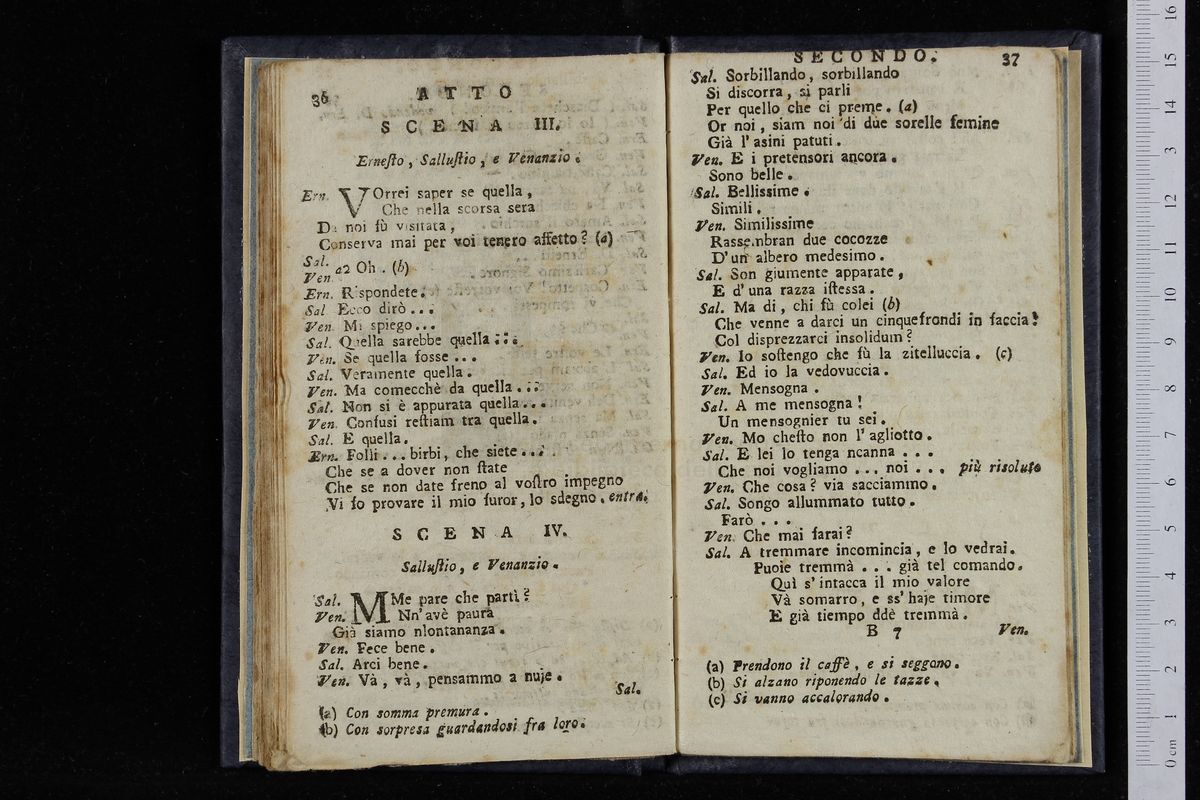 36 ATTO
SCENA III.
Ernesto, Sallustio, e Venanzio.
Ern. VOrrei saper se quella,
Che nella scorsa sera
Da noi fù visitata,
Conserva mai per voi tenero affetto? (a)
Sal.
Ven. a2 Oh. (b)
Ern. Rispondete.
Sal Ecco dirò...
Ven. Mi spiego...
Sal. Quella sarebbe quella...
Ven. Se quella fosse...
Sal. Veramente quella.
Ven. Ma comecchè da quella...
Sal. Non si è appurata quella...
Ven. Confusi restiam tra quella.
Sal. E quella.
Ern. Folli... birbi, che siete...
Che se a dover non state
Che se non date freno al vostro impegno
Vi fo provare il mio furor, lo sdegno. entra.
SCENA IV.
Sallustio, e Venanzio.
Sal. MMe pare che partì?
Ven. Nn'avè paura
Già siamo nlontananza.
Ven. Fece bene.
Sal. Arci bene.
Ven. Và, và, pensammo a nuje.
Sal.
(a) Con somma premura.
(b) Con sorpresa guardandosi fra loro.
SECONDO. 37
Sal. Sorbillando, sorbillando
Si discorra, si parli
Per quello che ci preme. (a)
Or noi, siam noi di due sorelle femine
Già l'asini patuti.
Ven. E i pretensori ancora.
Sono belle.
Sal. Bellissime.
Simili.
Ven. Similissime
Rassembran due cocozze
D'un albero medesimo.
Sal. Son giumente apparate,
E d'una razza istessa.
Sal. Ma di, chi fù colei (b)
Che venne a darci un cinquefrondi in faccia!
Col disprezzarci insolidum?
Ven. Io sostengo che fù la zitelluccia. (c)
Sal. Ed io la vedovuccia.
Ven. Mensogna.
Sal. A me mensogna!
Un mensognier tu sei.
Ven. Mo chesto non l'agliotto.
Sal. E lei lo tenga ncanna...
Che noi vogliamo... noi... più risoluto
Ven. Che cosa? via sacciammo.
Sal. Songo allummato tutto.
Farò...
Ven. Che mai farai?
Sal. A tremmare incomincia, e lo vedrai.
Puoie tremmà... già tel comando.
Quì s'intacca il mio valore
Và somarro, e ss'haje timore
E già tiempo ddè tremmà.
B 7 Ven.
(a) Prendono il caffè, e si seggono.
(b) Si alzano riponendo le tazze.
(c) Si vanno accalorando.
0 cm 1 2 3 4 5 6 7 8 9 10 11 12 3 14 15 16